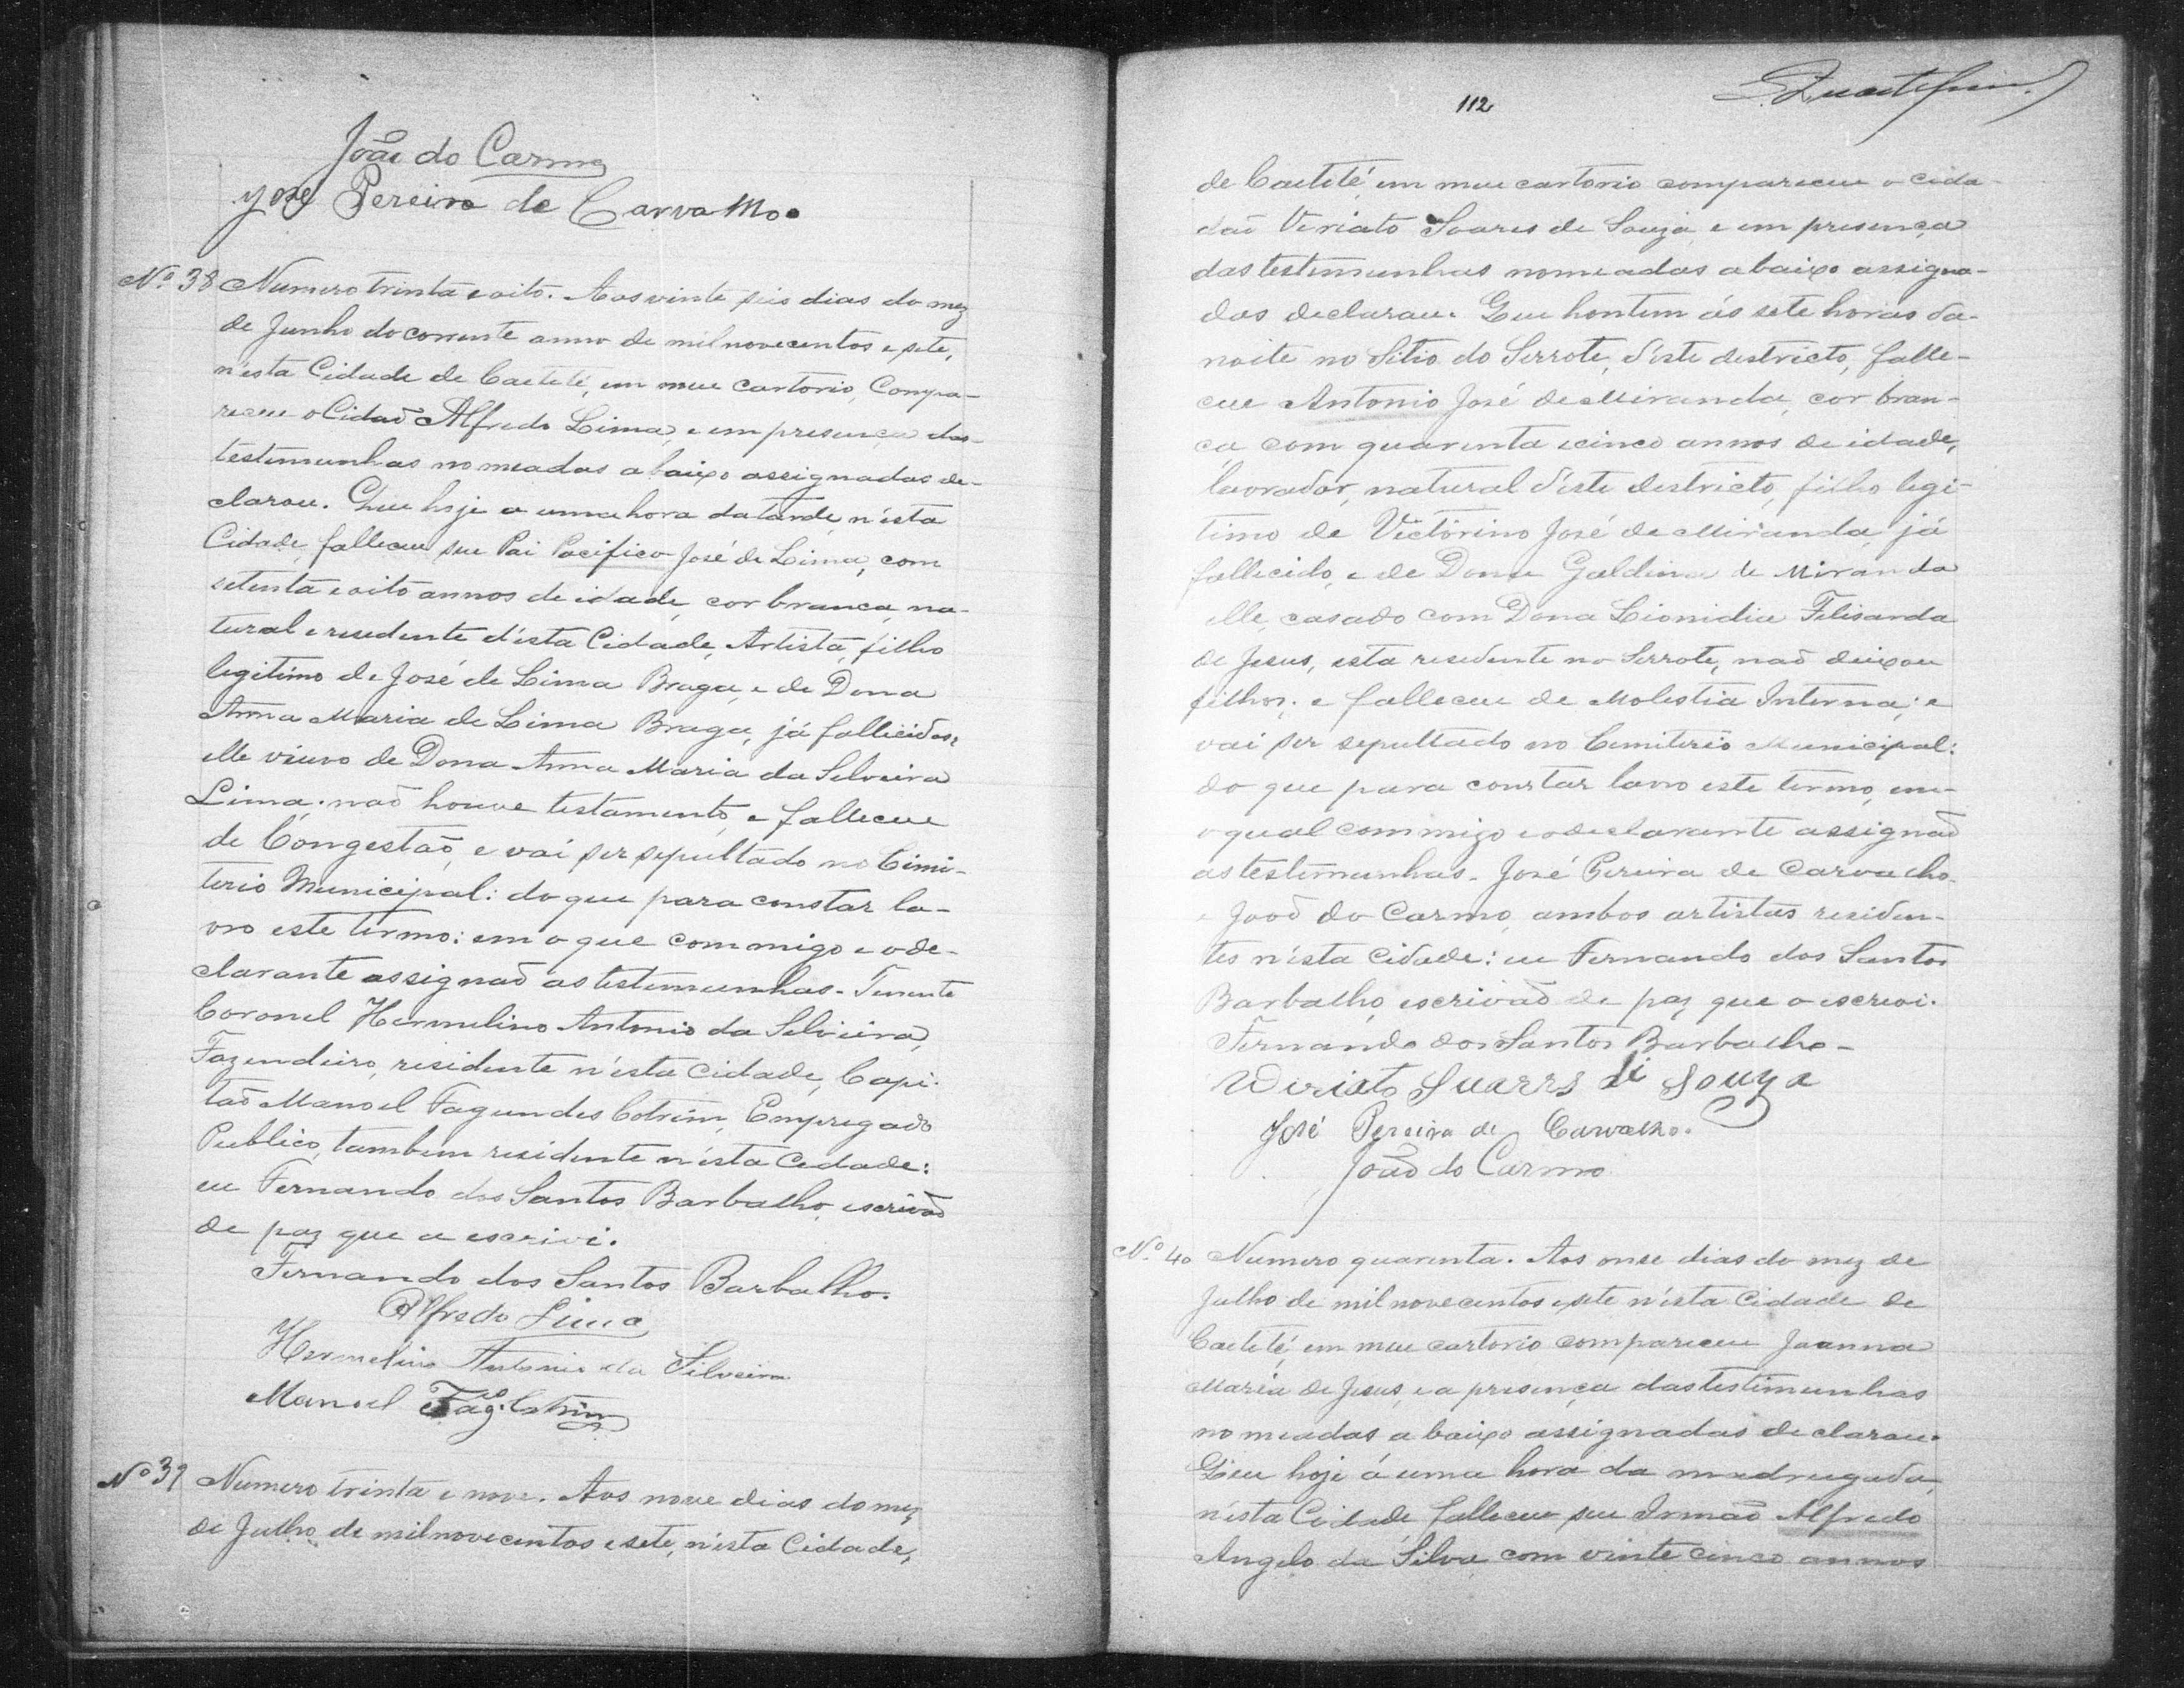 João do Carmo
José Pereira de Carvalho
Nº 38 Numero trinta e oito. Aos vinte seis dias do mez
de Junho do corrente anno de mil novecentos e sete,
n'esta Cidade de Caeteté, em meu cartorio, Compa-
receu o Cidaõ Alfredo Lima, e em presença das
testemunhas nomeadas abaixo assignadas de-
clarou. Que hoje a uma hora da tarde, n'esta
Cidade, falleceu seu Pai Pacifico José de Lima, com
setenta e oito annos de idade, cor branca, na-
tural e residente d'esta Cidade, Artista, filho
legitimo de José de Lima Braga, e de Dona
Anna Maria de Lima Braga, já fallicidos,
elle viuvo de Dona Anna Maria da Selveira
Lima; naõ houve testamento, e falleceu
de Congestaõ, e vai ser sepultado no Cimi-
terio Municipal: do que para constar la-
vro este termo: em o que commigo e o de-
clarante assignaõ as testemunhas. Tenente
Coronel Hermelino Antonio da Selveira
Fazendeiro, residente n'esta Cidade, Capi-
taõ Manoel Fagundes Cotrim, Empregado
Publico, tambem residente n'esta Cidade:
eu Fernando dos Santos Barbalho, escrivaõ
de paz que a escrivi.
Fernando dos Santos Barbalho.
Alfredo Lima
Hermelino Antonio da Silveira
Manoel Fag.es Cotrim
Nº 39 Numero trinta e nove. Aos nove dias do mez
de Julho de mil novecentos e sete, n'esta Cidade,
112
de Caeteté, em meu cartorio compareceu o cida-
daõ Veriato Soares de Souza, e em presença
das testemunhas nomeadas abaixo assigna-
das declarau. Que hontem ás sete horas da
noite no Sitio do Serrote, d'este destricto, falle-
ceu Antonio José de Miranda, cor bran-
ca com quarenta e cinco annos de idade,
lavrador, natural d'este destricto, filho legi-
timo de Victorino José de Miranda já
fallecido, e de Dona Galdina de Miranda
elle casado com Dona Lionidia Felisarda
de Jesus, esta residente no Serrote, naõ deixou
filhos; e falleceu de Molestia Interna; e
vai ser sepultado no Cemiterio Municipal:
do que para constar lavro este termo, em
o qual commigo e o declarante assignaõ
as testemunhas. José Pereira de Carvalho
e Joaõ do Carmo, ambos artistas residen-
tes n'esta Cidade: eu Fernando dos Santos
Barbalho, escrivaõ de paz que o escrevi.
Fernando dos Santos Barbalho
Weriato Suarrs di Souza
José Pereira de Carvalho.
João do Carmo
Nº 40 Numero quarenta. Aos onse dias do mez de
Julho de mil novecentos e sete n'esta Cidade de
Caeteté, em meu cartorio compareceu Joanna
Maria de Jesus, e a presença das testimunhas
nomeadas abaixo assignadas declarau.
Que hoje á uma hora da madrugada,
n'esta Cidade falleceu seu Irmaõ Alfredo
Angelo da Silva com vinte cinco annos